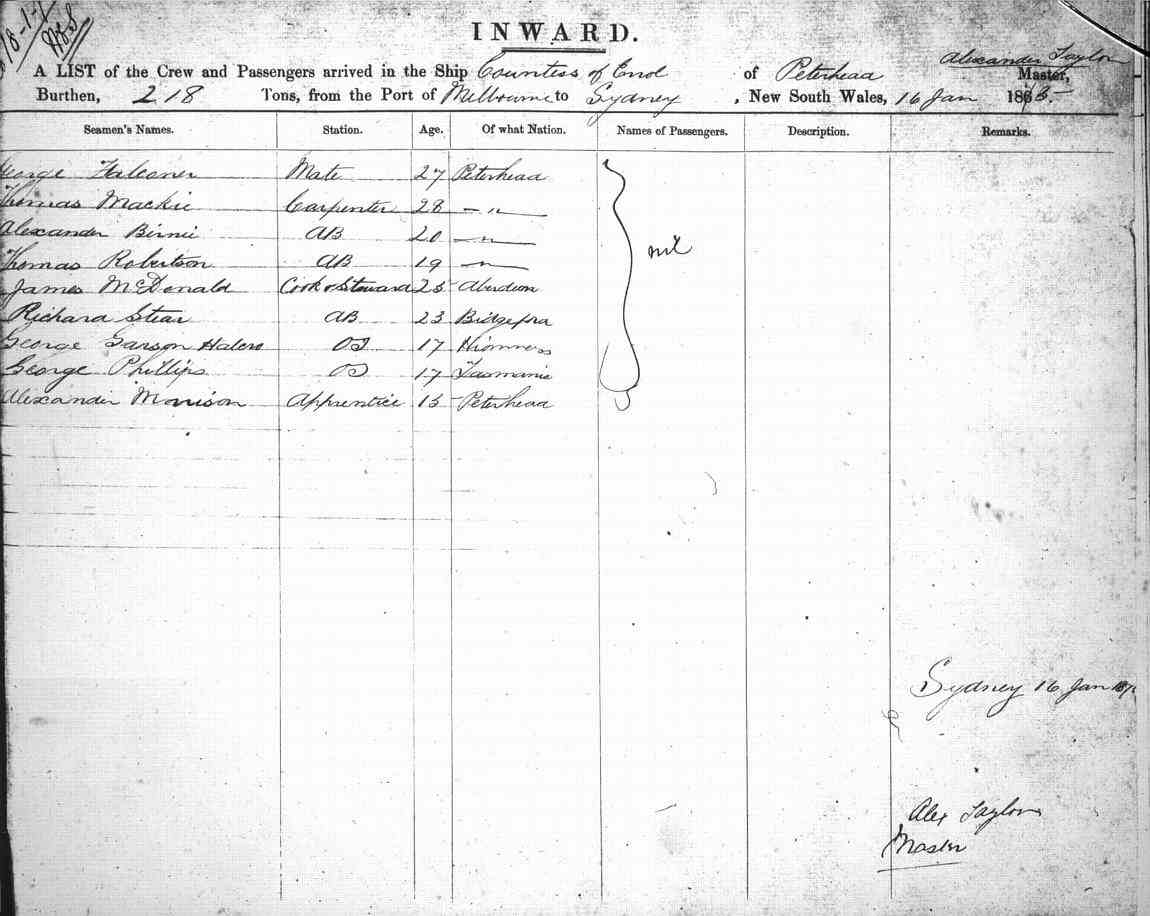 18-1-7
INWARD.
A LIST of the Crew and Passengers arrived in the Ship Countess of Errol of Peterhead Alexander Taylor Master,
Burthen, 218 Tons, from the Port of Melbourne to Sydney, New South Wales, 16 Jan 18
Seamen's Names. Station. Age. Of what Nation. Names of Passengers. Description. Remarks.
George Falconer Mate 27 Peterhead
Thomas Mackie Carpenter 28 — "
Alexander Birnie AB 20 — "
nil
Thomas Robertson AB 19 — "
James McDonald Cook & Steward 25 Aberdeen
Richard Stear AB 23 
George Garson Halcro OS 17
George Phillips OS 17 Tasmania
Alexander Morrison Apprentice 15 Peterhead
Sydney 16 Jan
Alex Taylor
Master